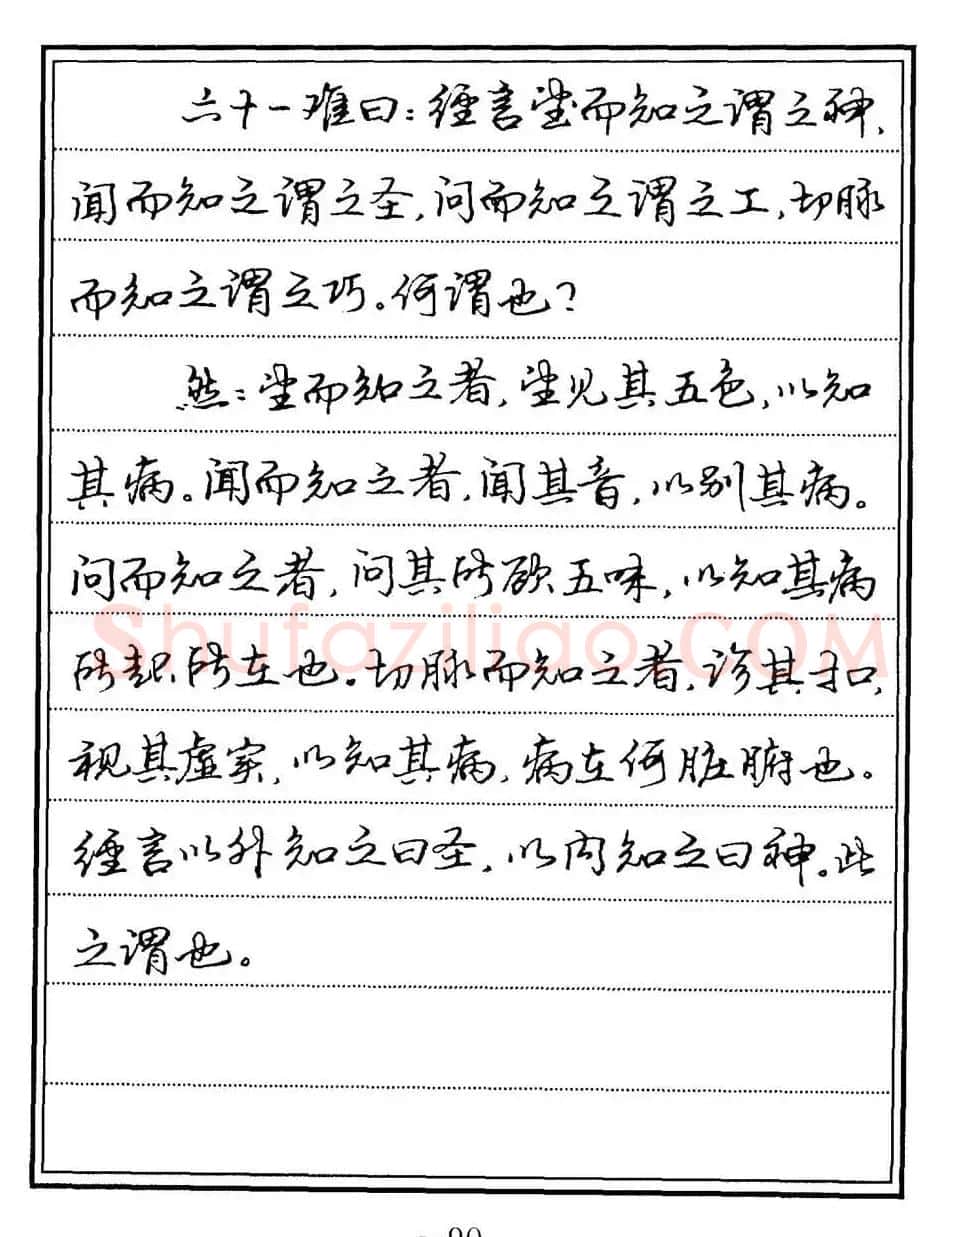 六十一难曰：经言望而知之谓之神，
闻而知之谓之圣，问而知之谓之工，切脉
而知之谓之巧。何谓也？
然：望而知之者，望见其五色，以知
其病。闻而知之者，闻其音，以别其病。
问而知之者，问其所欲五味，以知其病
所起所在也。切脉而知之者，诊其寸口，
视其虚实，以知其病，病在何脏腑也。
经言以外知之曰圣，以内知之曰神。此
之谓也。
Shufaziliao.COM